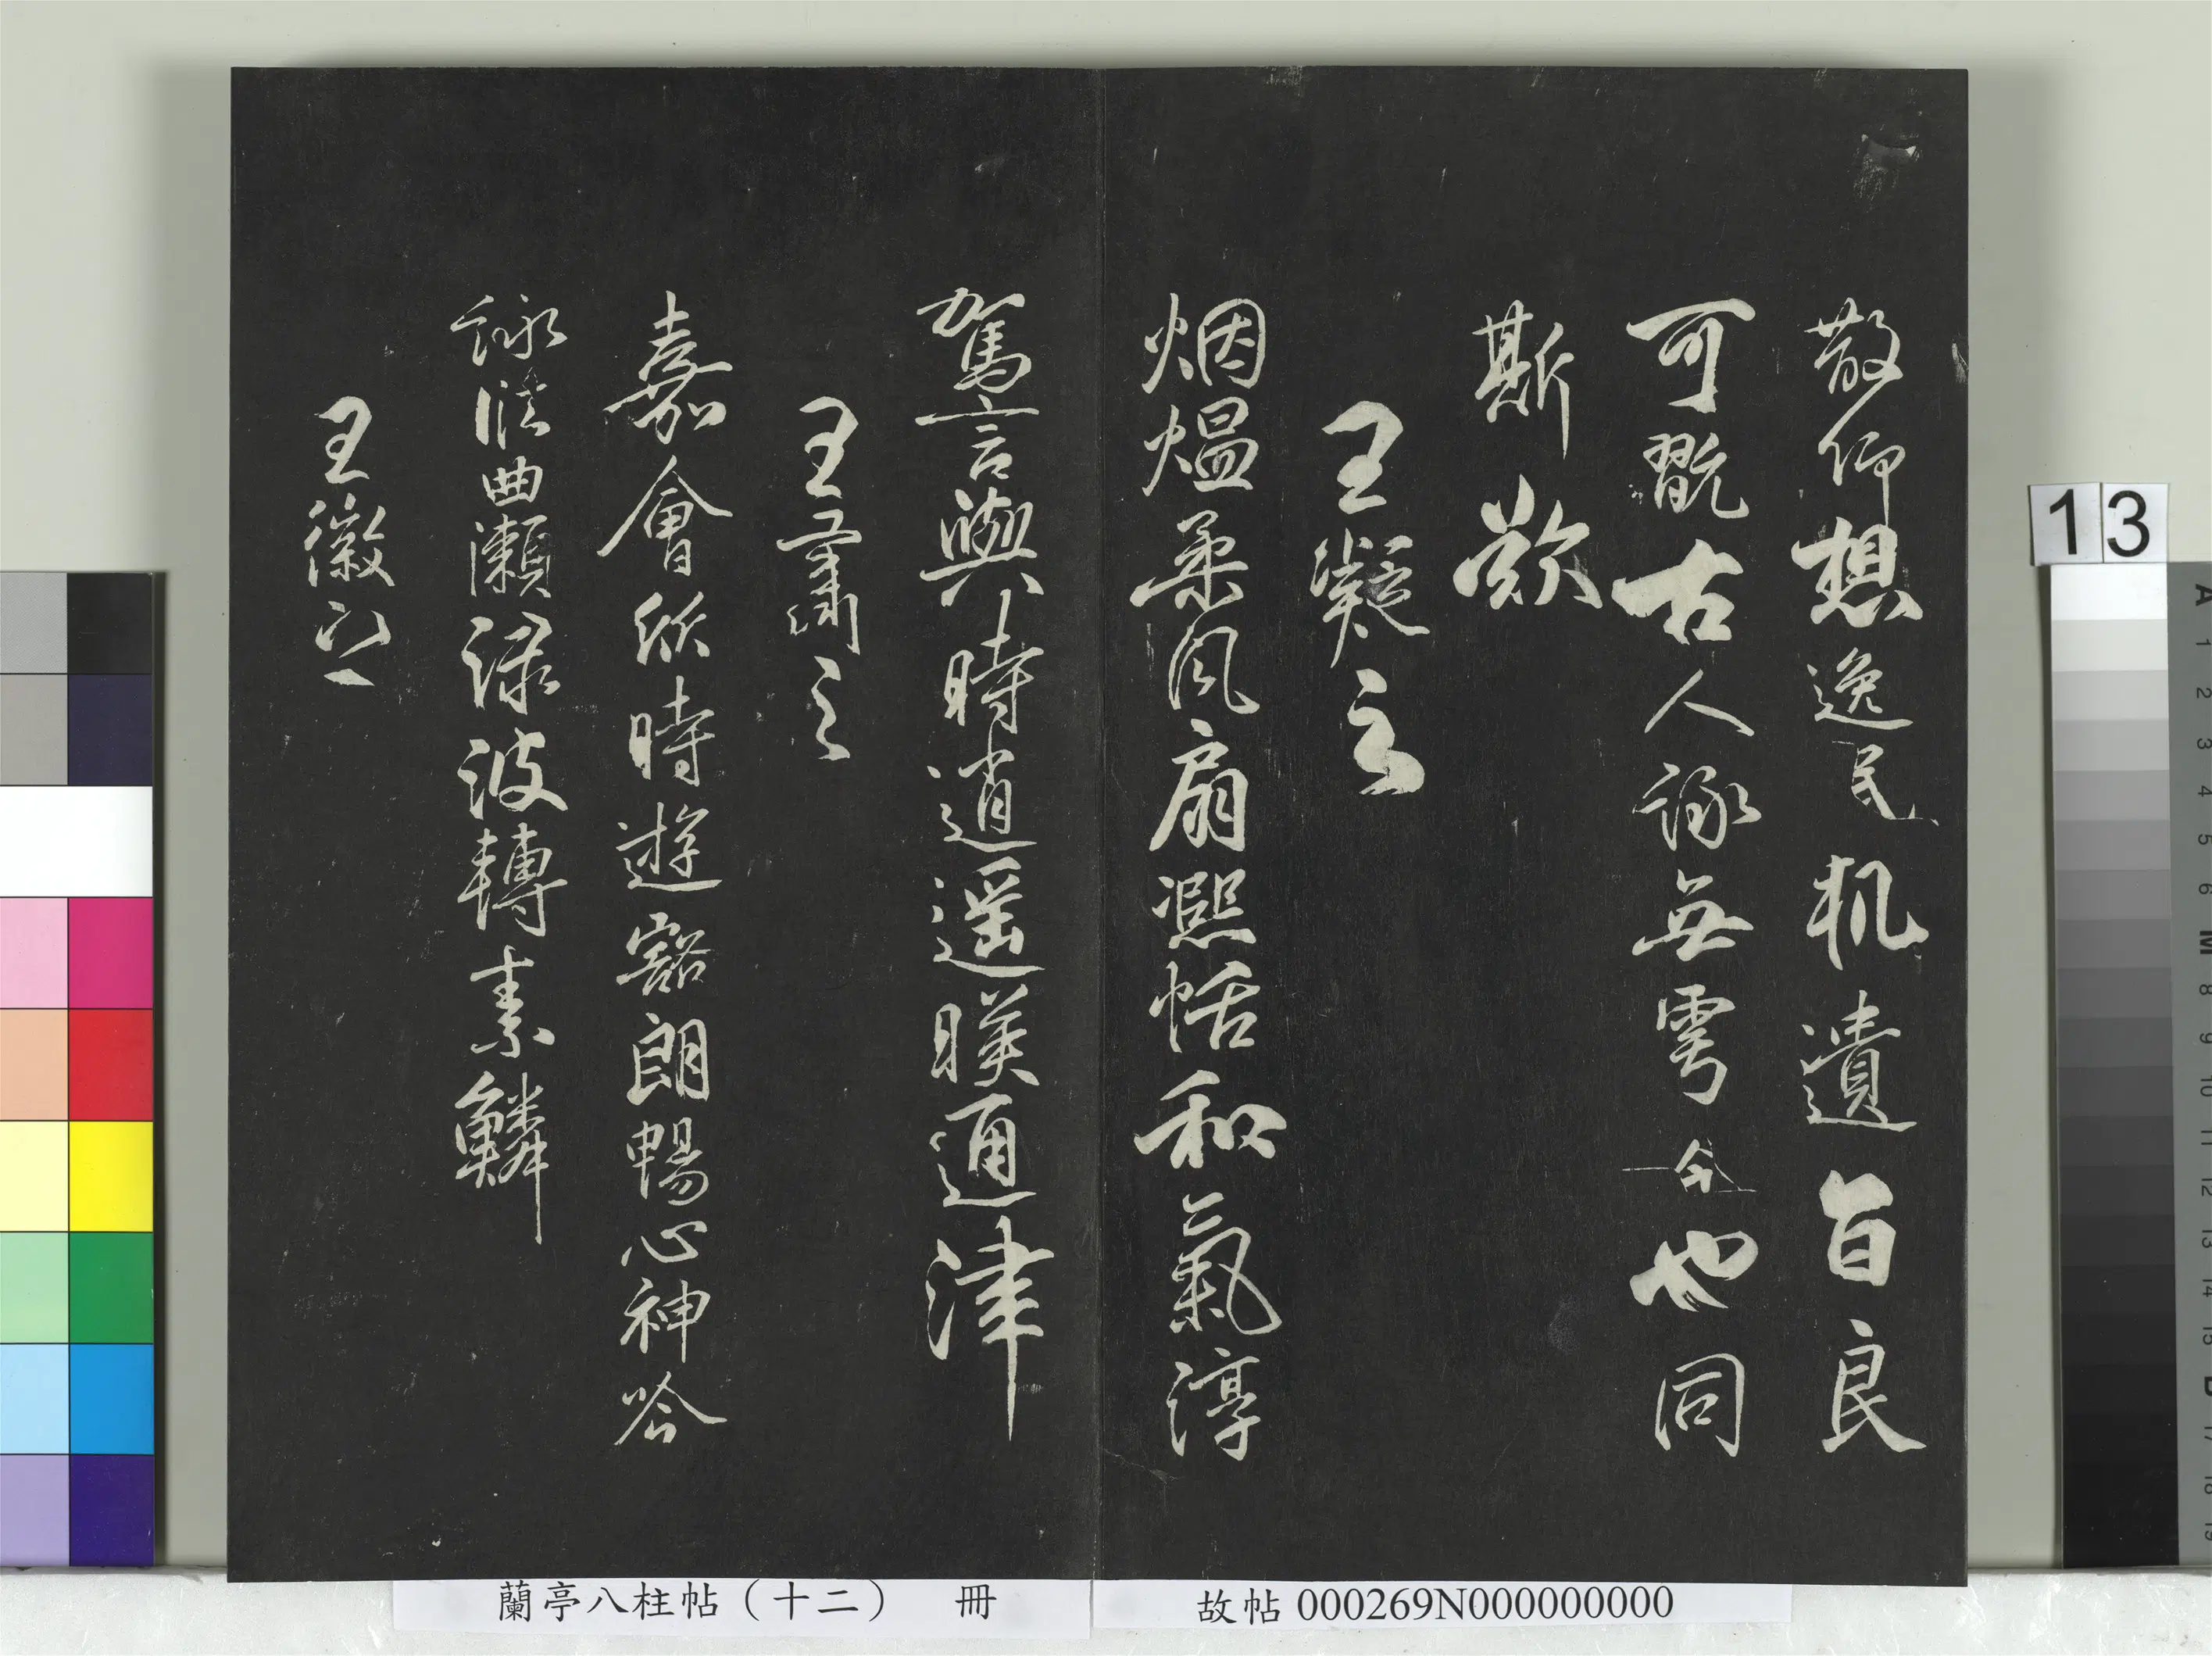 散仰想逸民机遺旨良
可翫古人詠無雩今也同
斯歎
王凝之
烟熅柔風扇熙恬和氣淳
駕言興時遊逍遙暎通津
王肅之
嘉會欣時遊豁朗暢心神吟
詠激曲瀨渌波轉素鱗
王徽之
蘭亭八柱帖（十二） 冊
故帖 000269N000000000
13